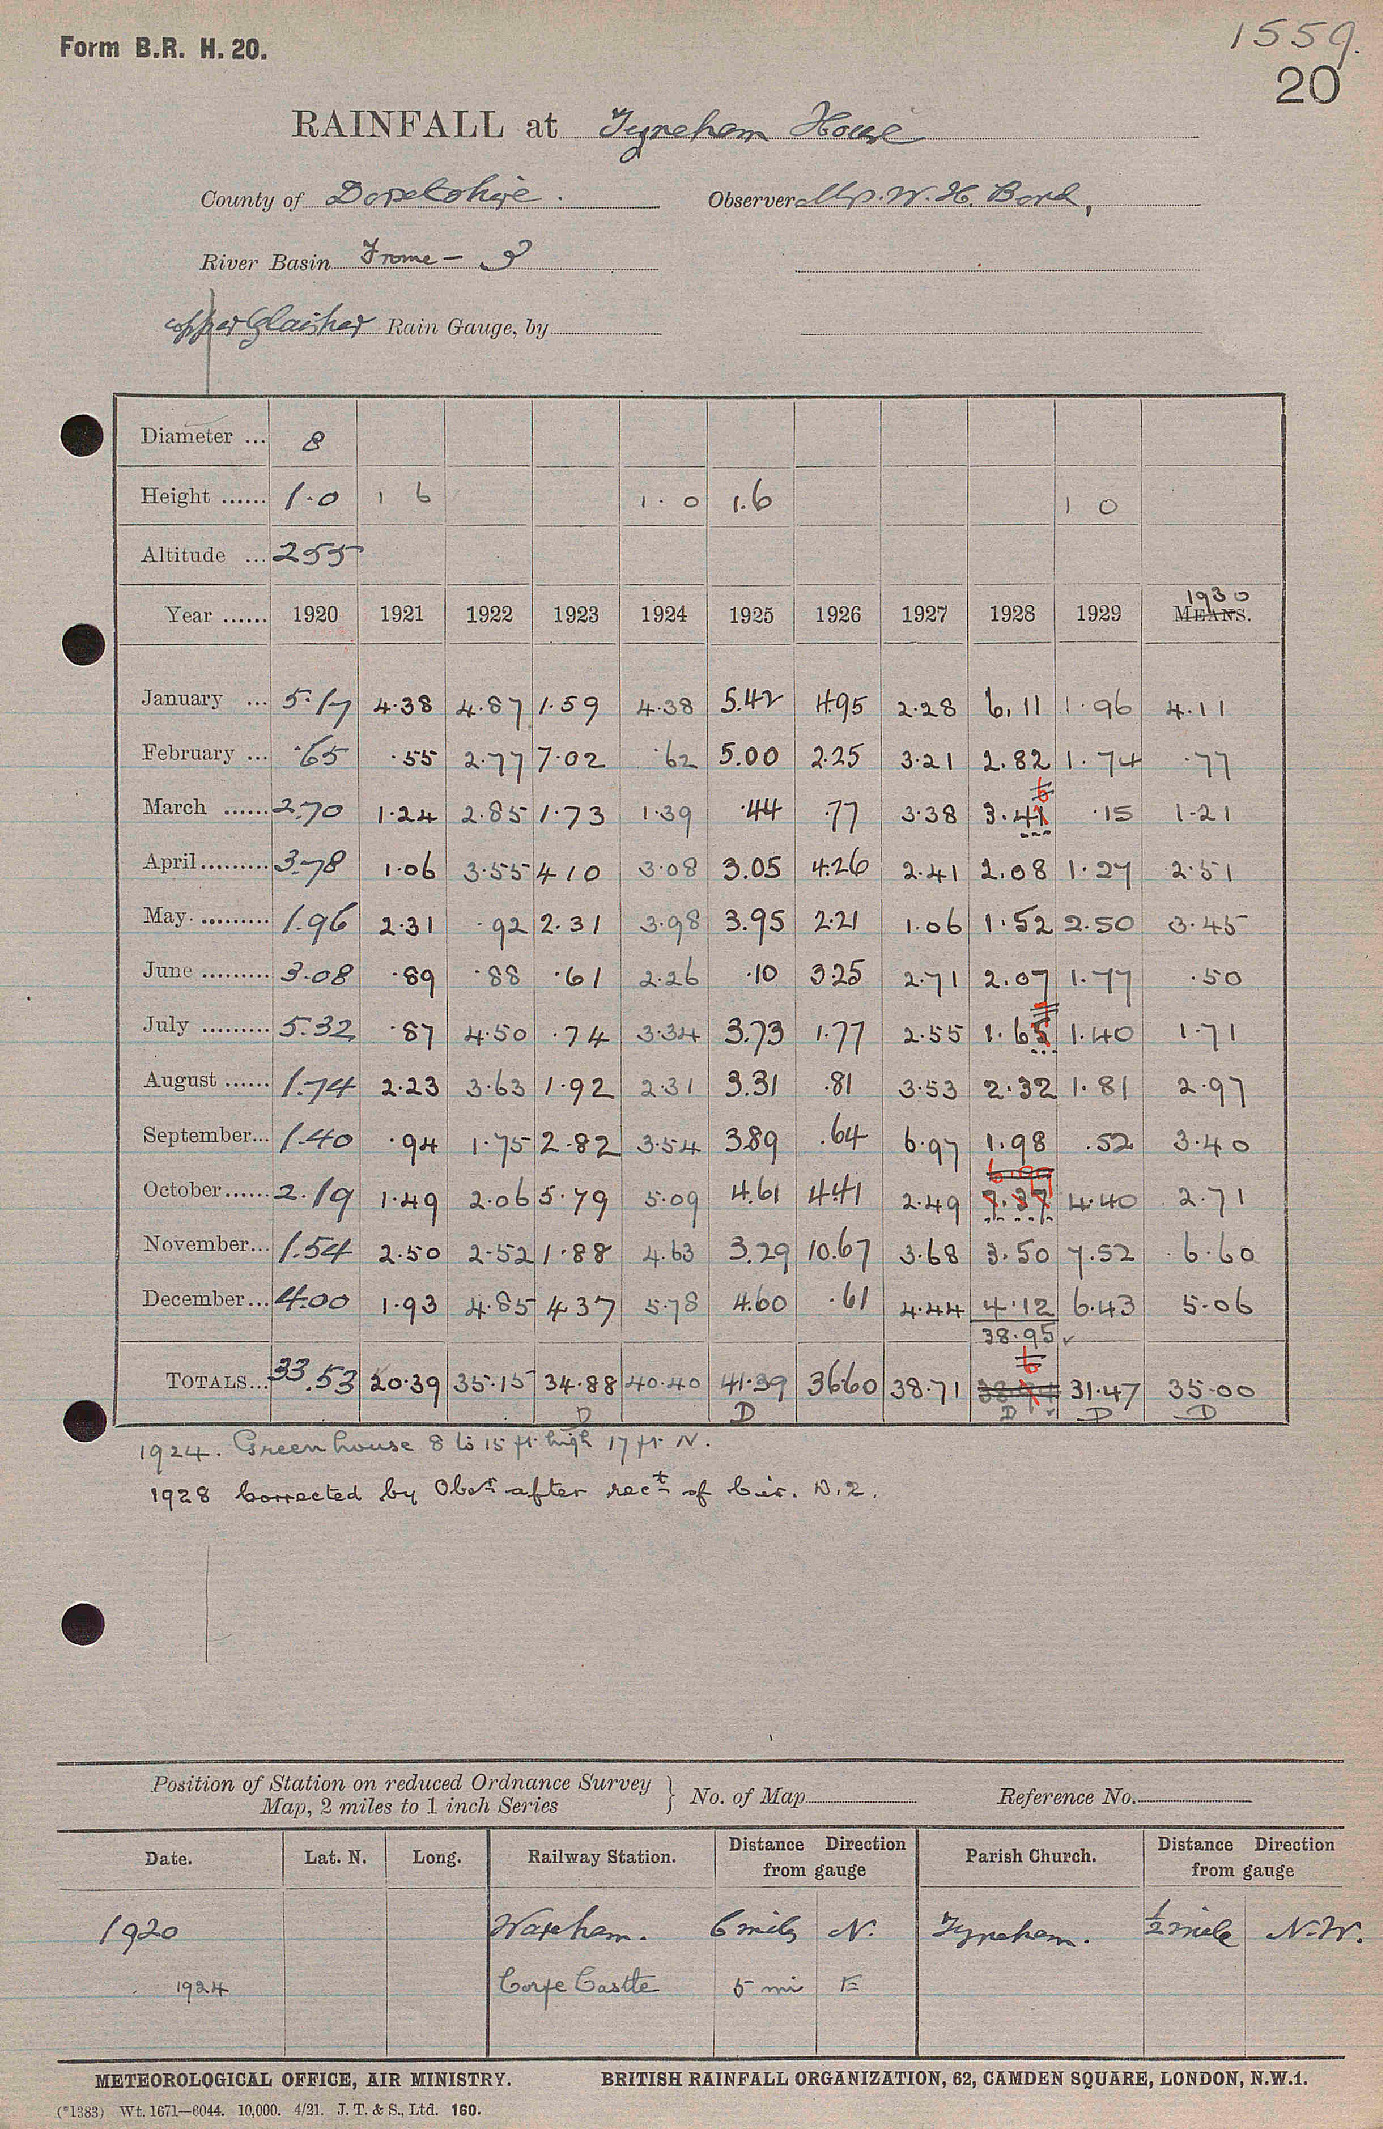 Form B.R. H. 20.
1559.
20
RAINFALL at Tyneham House
County of Dorsetshire. Observer W. H. Bond,
River Basin Frome -
copper Glaisher Rain Gauge, by
Diameter ... 8
Height ...... 1.0 1 6 1.0 1.6 1 0
Altitude ... 255
Year ...... 1920 1921 1922 1923 1924 1925 1926 1927 1928 1929 1930 MEANS.
January ... 5.17 4.38 4.87 1.59 4.38 5.42 4.95 2.28 6.11 1.96 4.11
February ... .65 .55 2.77 7.02 .62 5.00 2.25 3.21 2.82 1.74 .77
March ...... 2.70 1.24 2.85 1.73 1.39 .44 .77 3.38 3.41 6 .15 1.21
April......... 3.78 1.06 3.55 4 10 3.08 3.05 4.26 2.41 2.08 1.27 2.51
May. ......... 1.96 2.31 .92 2.31 3.98 3.95 2.21 1.06 1.52 2.50 3.45
June ......... 3.08 .89 .88 .61 2.26 .10 3.25 2.71 2.07 1.77 .50
July ......... 5.32 .87 4.50 .74 3.34 3.73 1.77 2.55 1.65 1.40 1.71
August ...... 1.74 2.23 3.63 1.92 2.31 3.31 .81 3.53 2.32 1.81 2.97
September... 1.40 .94 1.75 2.82 3.54 3.89 .64 6.97 1.98 .52 3.40
October...... 2.19 1.49 2.06 5.79 5.09 4.61 4.41 2.49 7.37 4.40 2.71
November... 1.54 2.50 2.52 1.88 4.63 3.29 10.67 3.68 3.50 7.52 6.60
December... 4.00 1.93 4.85 4.37 5.78 4.60 .61 4.44 4.12 6.43 5.06
38.95 ✓
TOTALS... 33.53 20.39 35.15 34.88 40.40 41.39 36.60 38.71 6 31.47 35.00
D D D D D
1924. Greenhouse 8 to 15 ft high 17 ft N.
1928 Corrected by Obsr after rect of Cir. D.2.
Position of Station on reduced Ordnance Survey
Map, 2 miles to 1 inch Series } No. of Map Reference No.
Date. Lat. N. Long. Railway Station. Distance Direction from gauge Parish Church. Distance Direction from gauge
1920 Wareham. 6 miles N. Tyneham. ½ mile N.W.
1924 Corfe Castle 5 mi E
METEOROLOGICAL OFFICE, AIR MINISTRY. BRITISH RAINFALL ORGANIZATION, 62, CAMDEN SQUARE, LONDON, N.W.1.
(*1383) Wt. 1671—6044. 10,000. 4/21. J. T. & S., Ltd. 160.